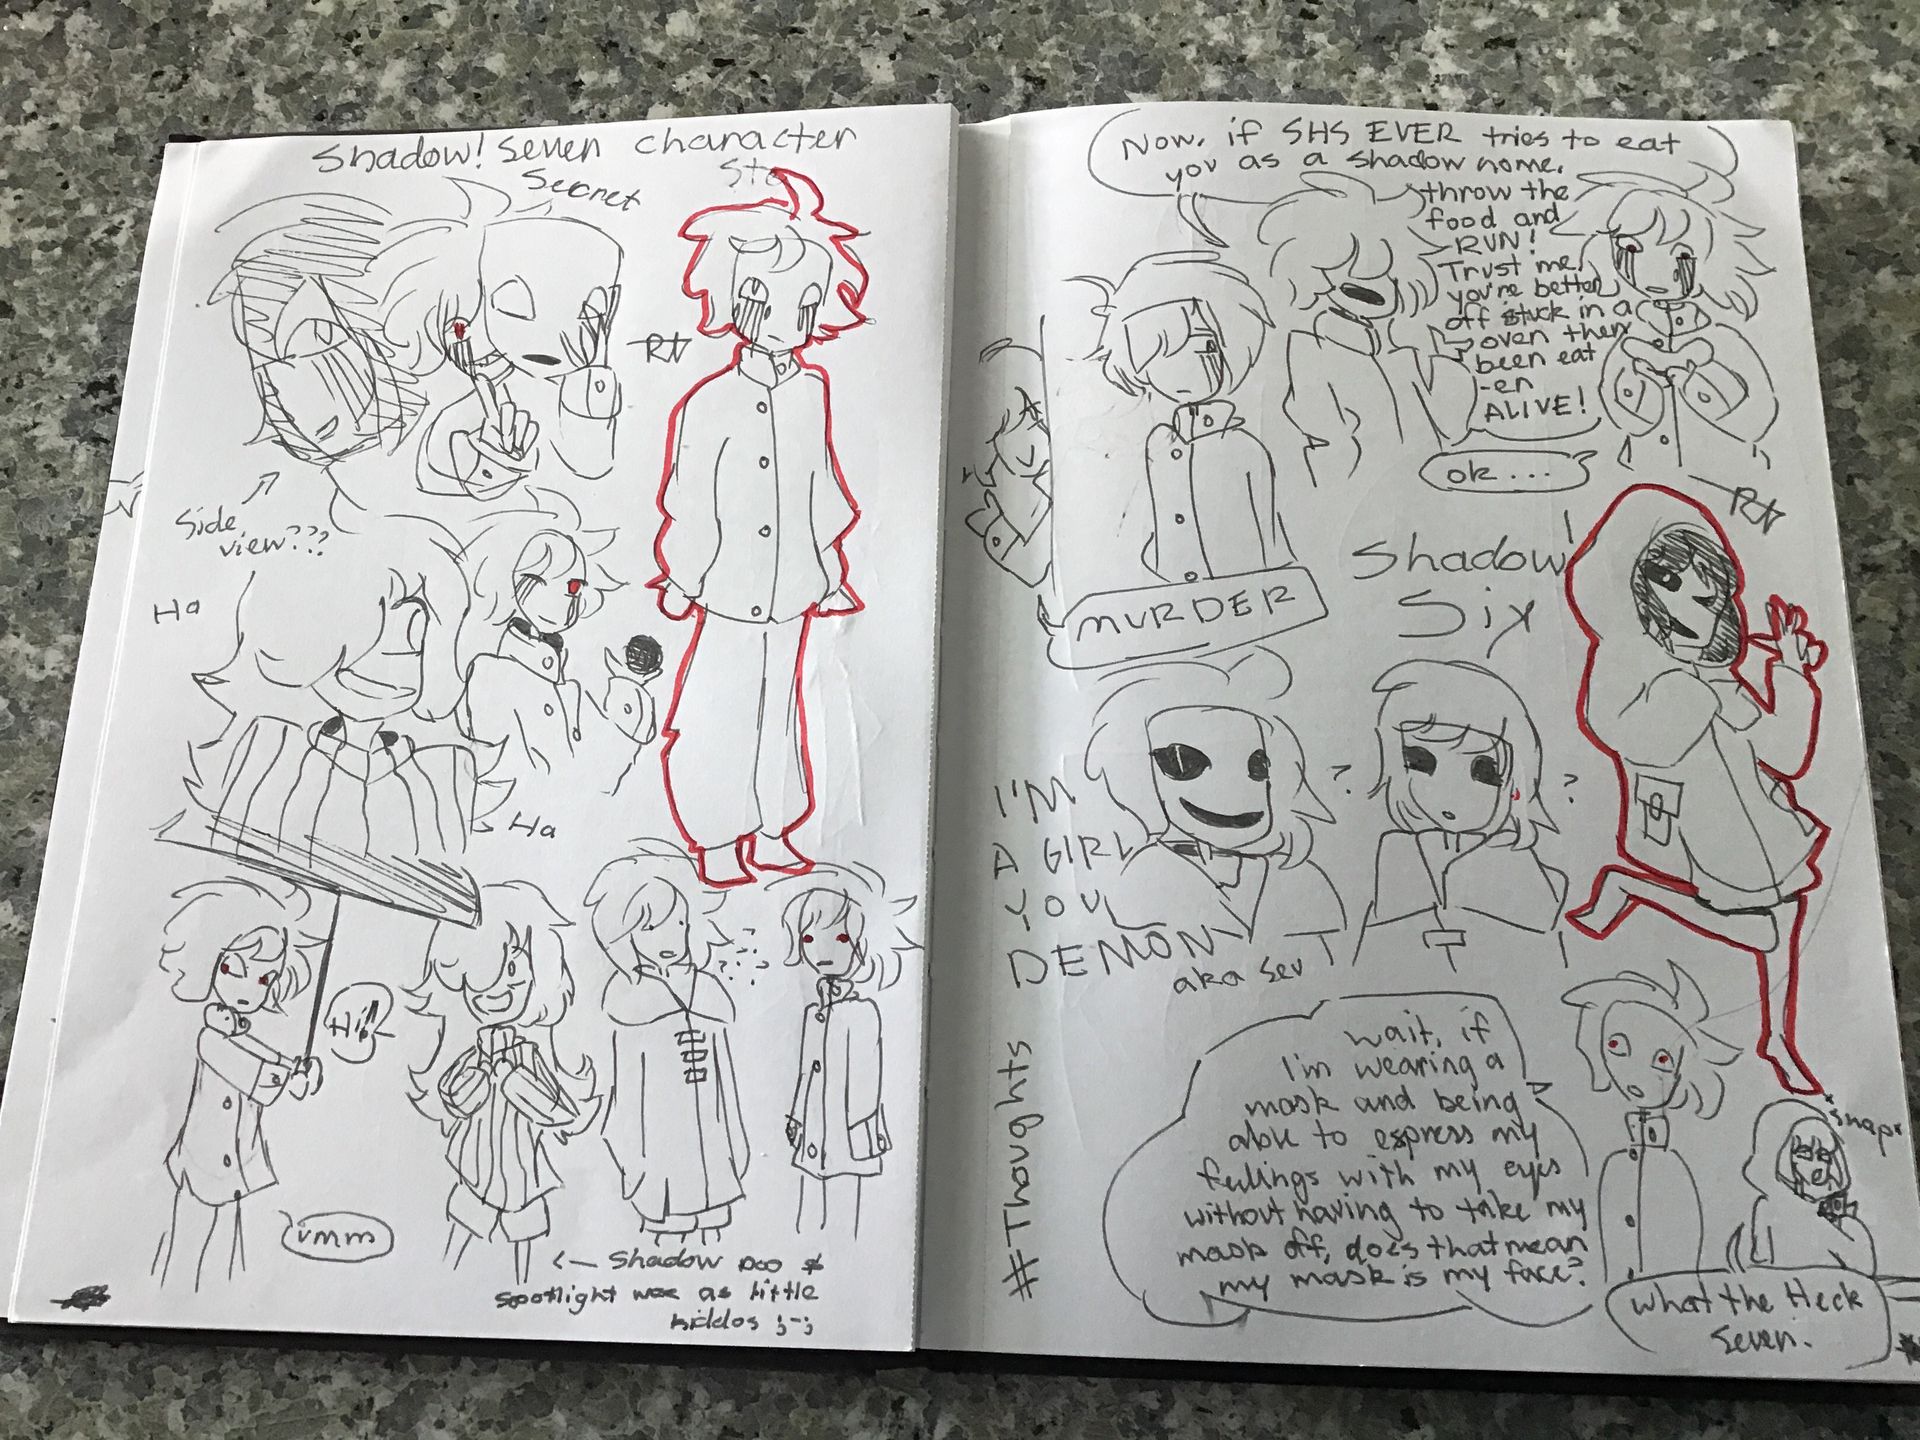 Shadow! Seven character
Secret
RN
Side
view???
Ha
Ha
Hi!
vmm
<— Shadow
spotlight as little
kiddos ;-;
Now, if SHS EVER tries to eat
you as a shadow nome,
throw the
food and
RUN!
Trust me,
you're better
off stuck in a
oven then
been eat
-en
ALIVE!
ok...
RN
MURDER
Shadow!
Six
? ?
I'M
A GIRL
YOU
DEMON
aka Sev
#Thoughts
wait, if
I'm wearing a
mask and being
able to espress my
feelings with my eyes
without having to take my
mask off, does that mean
my mask is my face?
*snaps
What the Heck
Seven.